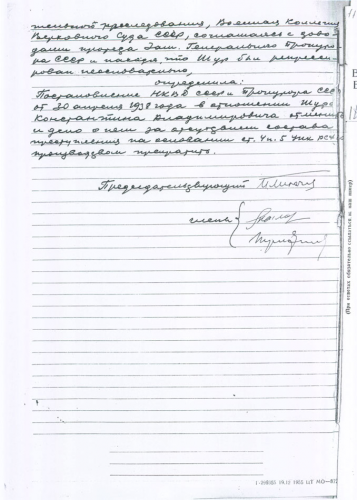 тельного расследования, Военная Коллегия
Верховного Суда СССР, соглашаясь с дово-
дами протеста Зам. Генерального Прокуро-
ра СССР и находя, что Шур был репресси-
рован необоснованно,
определила:
Постановление НКВД СССР и Прокурора СССР
от 20 апреля 1938 года в отношении Шура
Константина Владимировича отменить
и дело о нем за отсутствием состава
преступления на основании ст. 4 п. 5 УПК РСФСР
производством прекратить.
Председательствующий
члены
(При ответах обязательно ссылаться на наш номер)